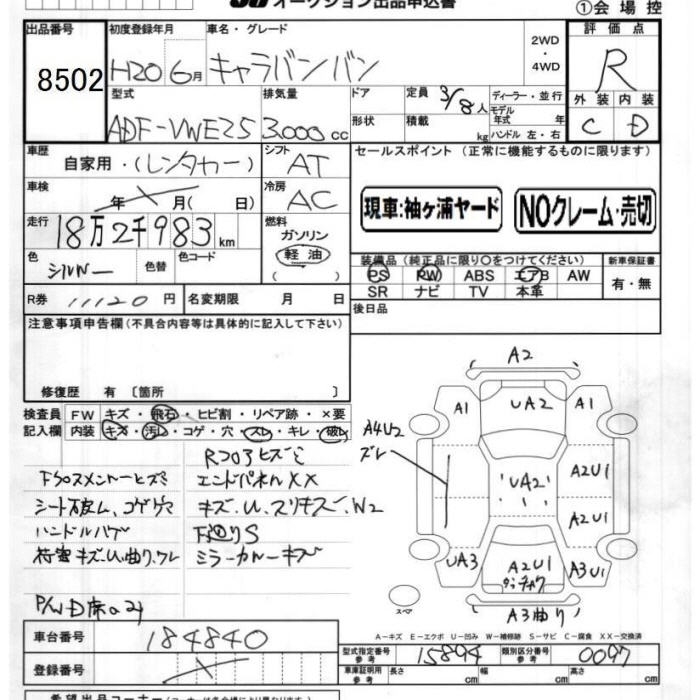 オークション出品申込書
①会場控
出品番号 初度登録年月 車名・グレード 2WD・4WD 評価点
8502 H20 6月 キャラバンバン R
型式 排気量 ドア 定員 3/8人 ディーラー・並行 外装 内装
ADF-VWE25 3,000cc 形状 積載 kg モデル年式 年式 ハンドル 左・右 C D
車歴 自家用・(レンタカー) シフト AT セールスポイント (正常に機能するものに限ります)
車検 年 月( 日) 冷房 AC
現車:袖ヶ浦ヤード NOクレーム・売切
走行 18万2千983km 燃料 ガソリン 軽油 ( )
色 シルバー 色替 色コード
装備品 (純正品に限り○をつけてください) 新車保証書
PS PW ABS エアB AW 有・無
SR ナビ TV 本革
R券 11120円 名変期限 月 日
後日品
注意事項申告欄(不具合内容等は具体的に記入して下さい)
修復歴 有 〔箇所 〕
検査員 FW キズ・飛石・ヒビ割・リペア跡・×要
記入欄 内装 キズ・汚レ・コゲ・穴・スレ・キレ・破レ
Rコアヒズミ
エンドパネルXX
シート破レ、コゲ キズ、U、スリキズ、W2
下廻りS
P/W D席のみ
A2
A1 UA2 A1
A4U2
ズレ
UA2 A2U1
A2U1
UA3 A2U1 A3U1
スペア A3曲り
A-キズ E-エクボ U-凹み W-補修跡 S-サビ C-腐食 XX-交換済
車台番号 184840
型式指定番号 参考 15894 類別区分番号 参考 0097
登録番号
車庫証明用 参考 長さ cm 幅 cm 高さ cm
希望出品コーナー